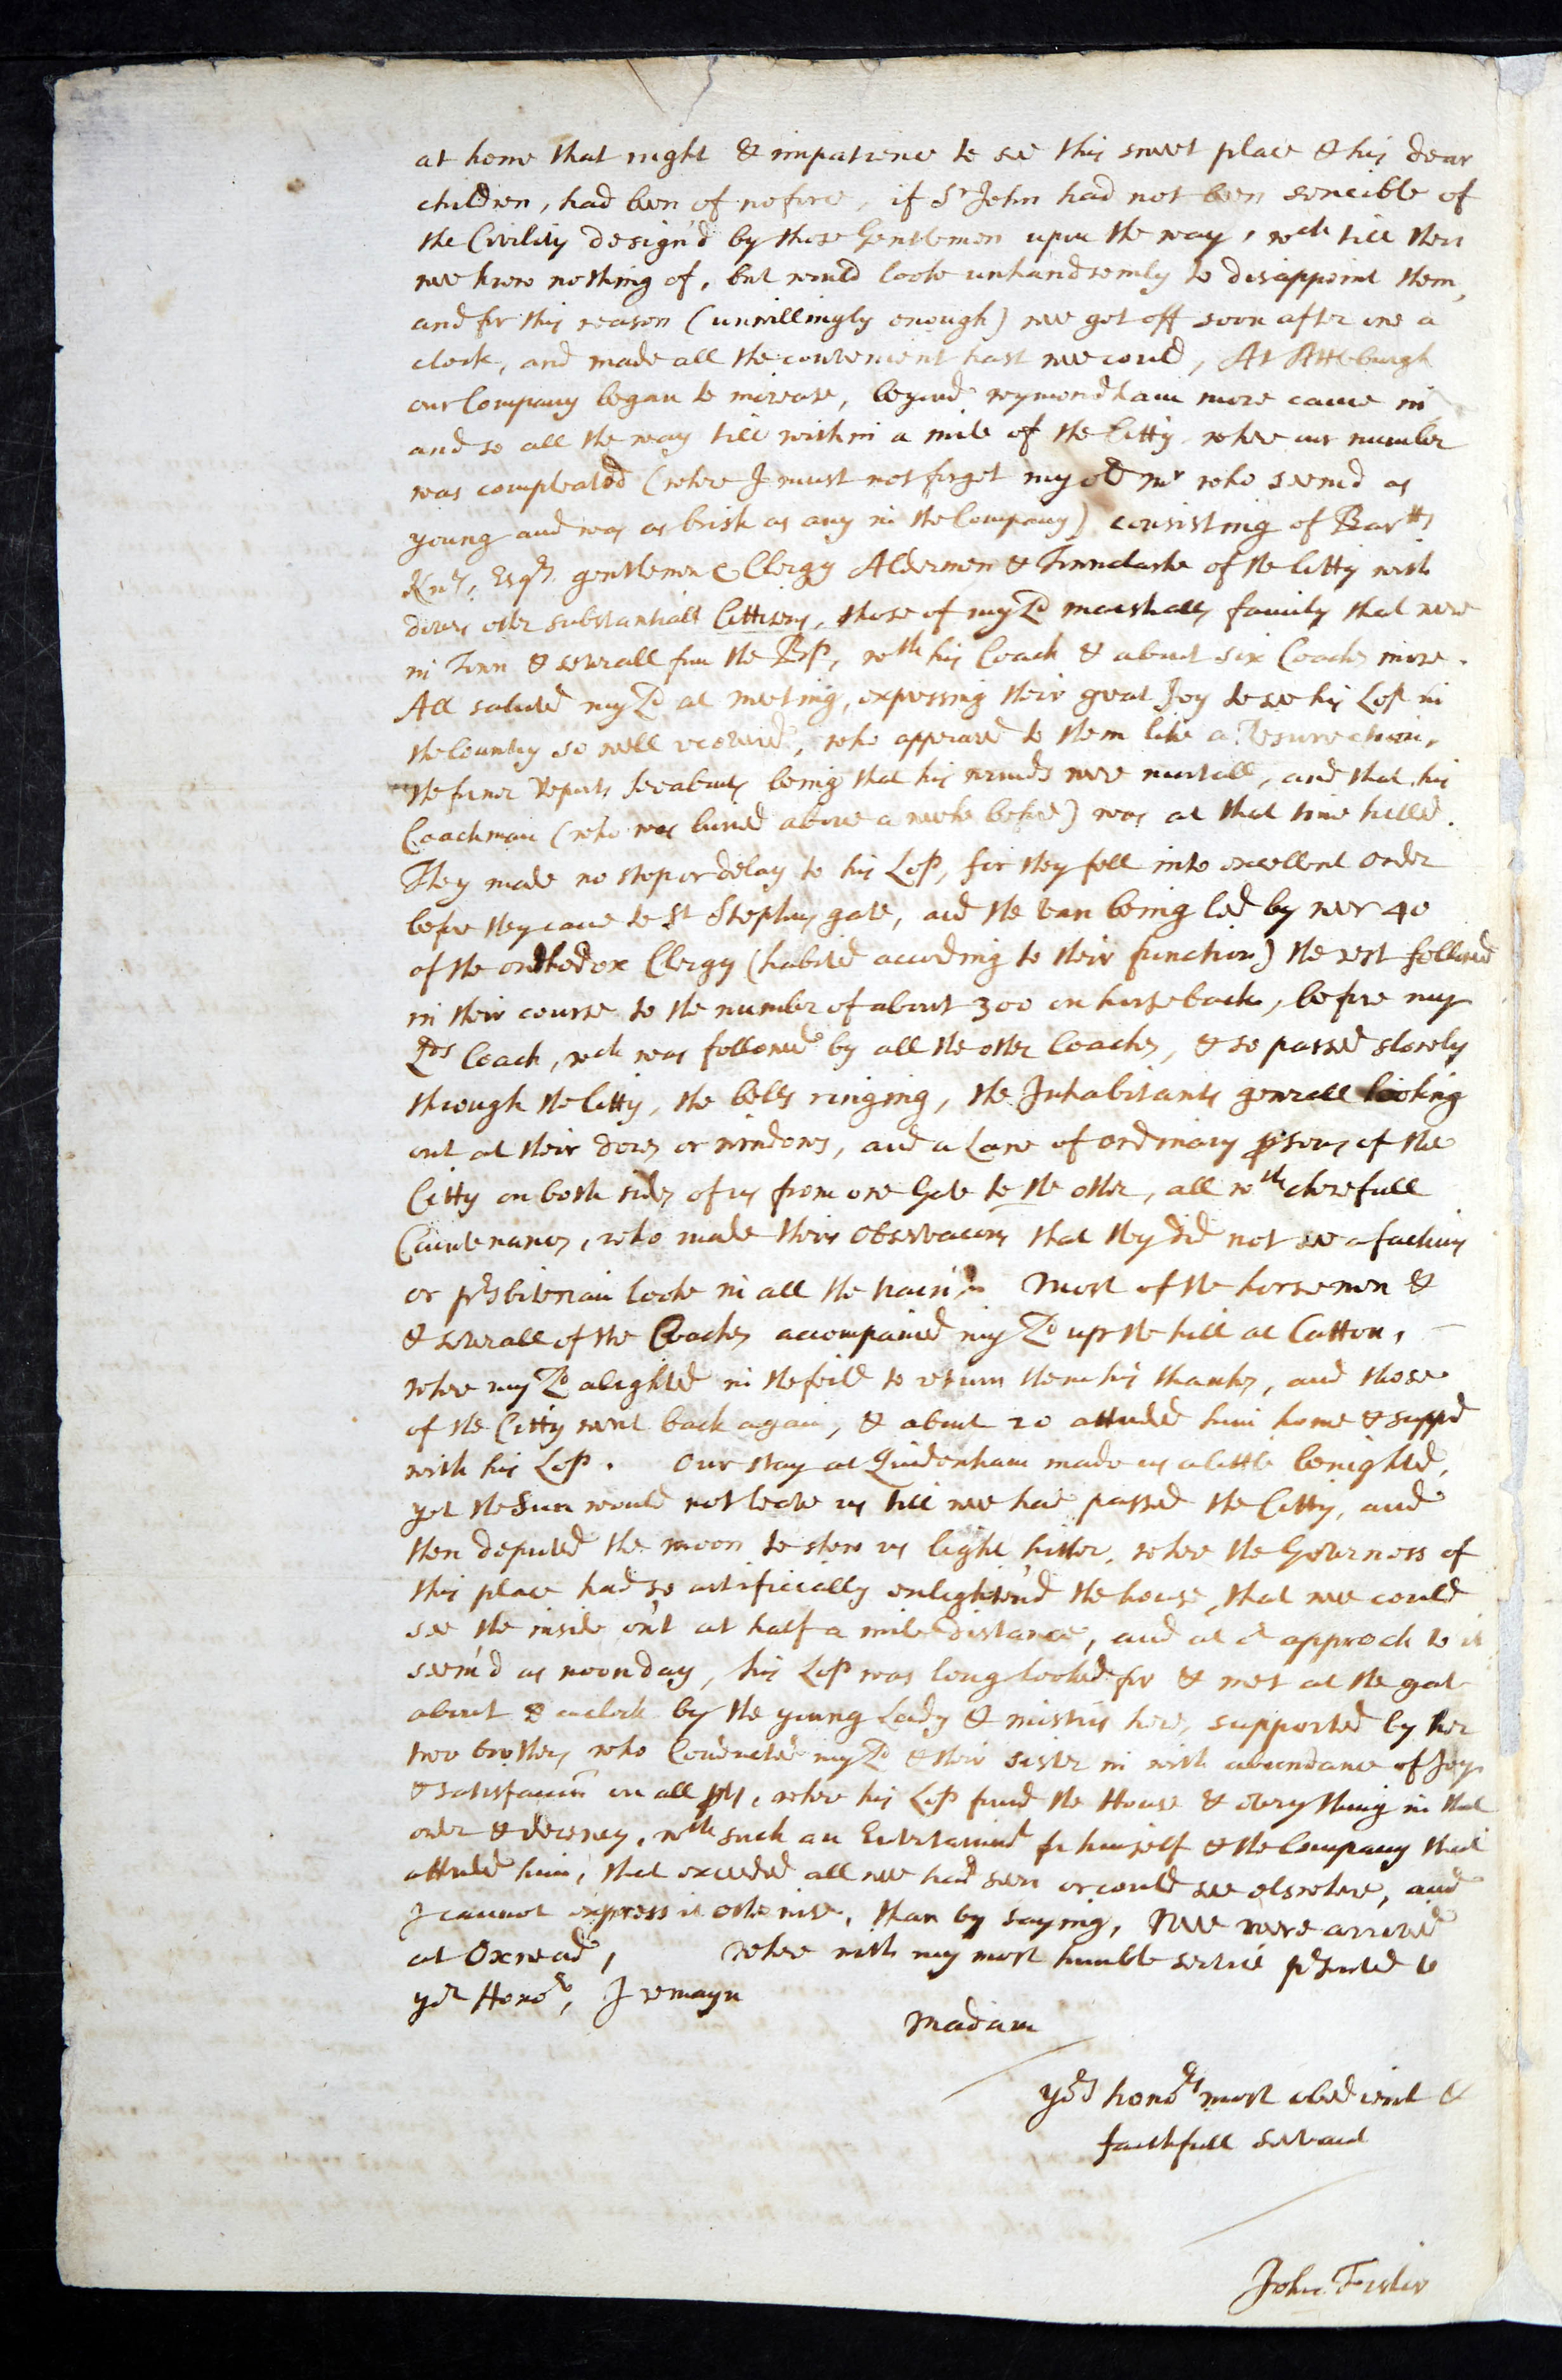 at home that night & impatience to see this sweet place & his dear
children, had been of no force, if Sr John had not been sencible of
the Civility design'd by those Gentlemen upon the way, wch till then
wee knew nothing of, but would looke unhandsomly to disappoint them,
and for this reason (unwillingly enough) wee got off soon after one a
clock, and made all the convenient hast wee could, At Attleburgh
our Company began to increase, beyond wymondham more came in,
and so all the way till within a mile of the Citty where our number
was compleated (where I must not forget my old Mr who seem'd as
young and was as brisk as any in the Company) consisting of Bartts
Knts, Esqrs gentlemen Clergy Aldermen & Townclarke of the Citty with
divers other substantiall Cittisens, those of my Ld marshalls family that were
in Town & severall from the BP, wth his Coach & about six Coaches more.
All saluted my Ld at meeting, expressing their great Joy to see his Lop in
the Country so well recovered, who appeared to them like a Resurection,
the former Reports hereabouts being that his wounds were mortall, and that his
Coachman (who was buried above a weeke before) was at that time killed.
They made no stop or delay to his Lop, for they fell into excellent order
before they came to St Stephens gate, and the Van being led by neer 40
of the orthodox Clergy (habited according to their function) the rest followed
in their course to the number of about 300 on horseback, before my
Lds Coach, wch was followed by all the other Coaches, & so passed slowly
through the Citty, the bells ringing, the Inhabitants generall looking
out at their dores or windows, and a Lane of ordinary psons of the
Citty on both sides of us from one Gate to the other, all wth cherefull
Countenances, who made theis Observacons that they did not see a factious
or prsbiterian looke in all the train. Most of the horsemen &
& severall of the Coaches accompanied my Ld upp the hill at Catton,
where my Ld alighted in the feild to return them his thanks, and those
of the Citty went back again, & about 20 attended him home & supp'd
with his Lop. Our stay at Quidenham made us a little benighted,
yet the Sun would not leave us till wee had passed the Citty, and
then deputed the moon to shew us light hither, where the Governess of
this place had so artificially enlighten'd the house, that wee could
see the inside on't at half a mile distance, and at approch to it
seem'd as noonday, his Lop was long looked for & met at the gate
about 8 a clock by the young Lady & mistris here, supported by her
two brothers who Conducted my Ld & their sister in with abundance of Joy
& satisfaccon on all pts, where his Lop found the House & every thing in that
order & decency, wth such an Entertainmt for himself & the Company that
attended him, that exceeded all wee had seen or could see elswhere, and
I cannot express it otherwise, than by saying, Wee were arrived
at Oxnead, where with my most humble service prsented to
yor Honor, I remayn
Madam
yor honors most obedient &
faithfull servant
John Fisher